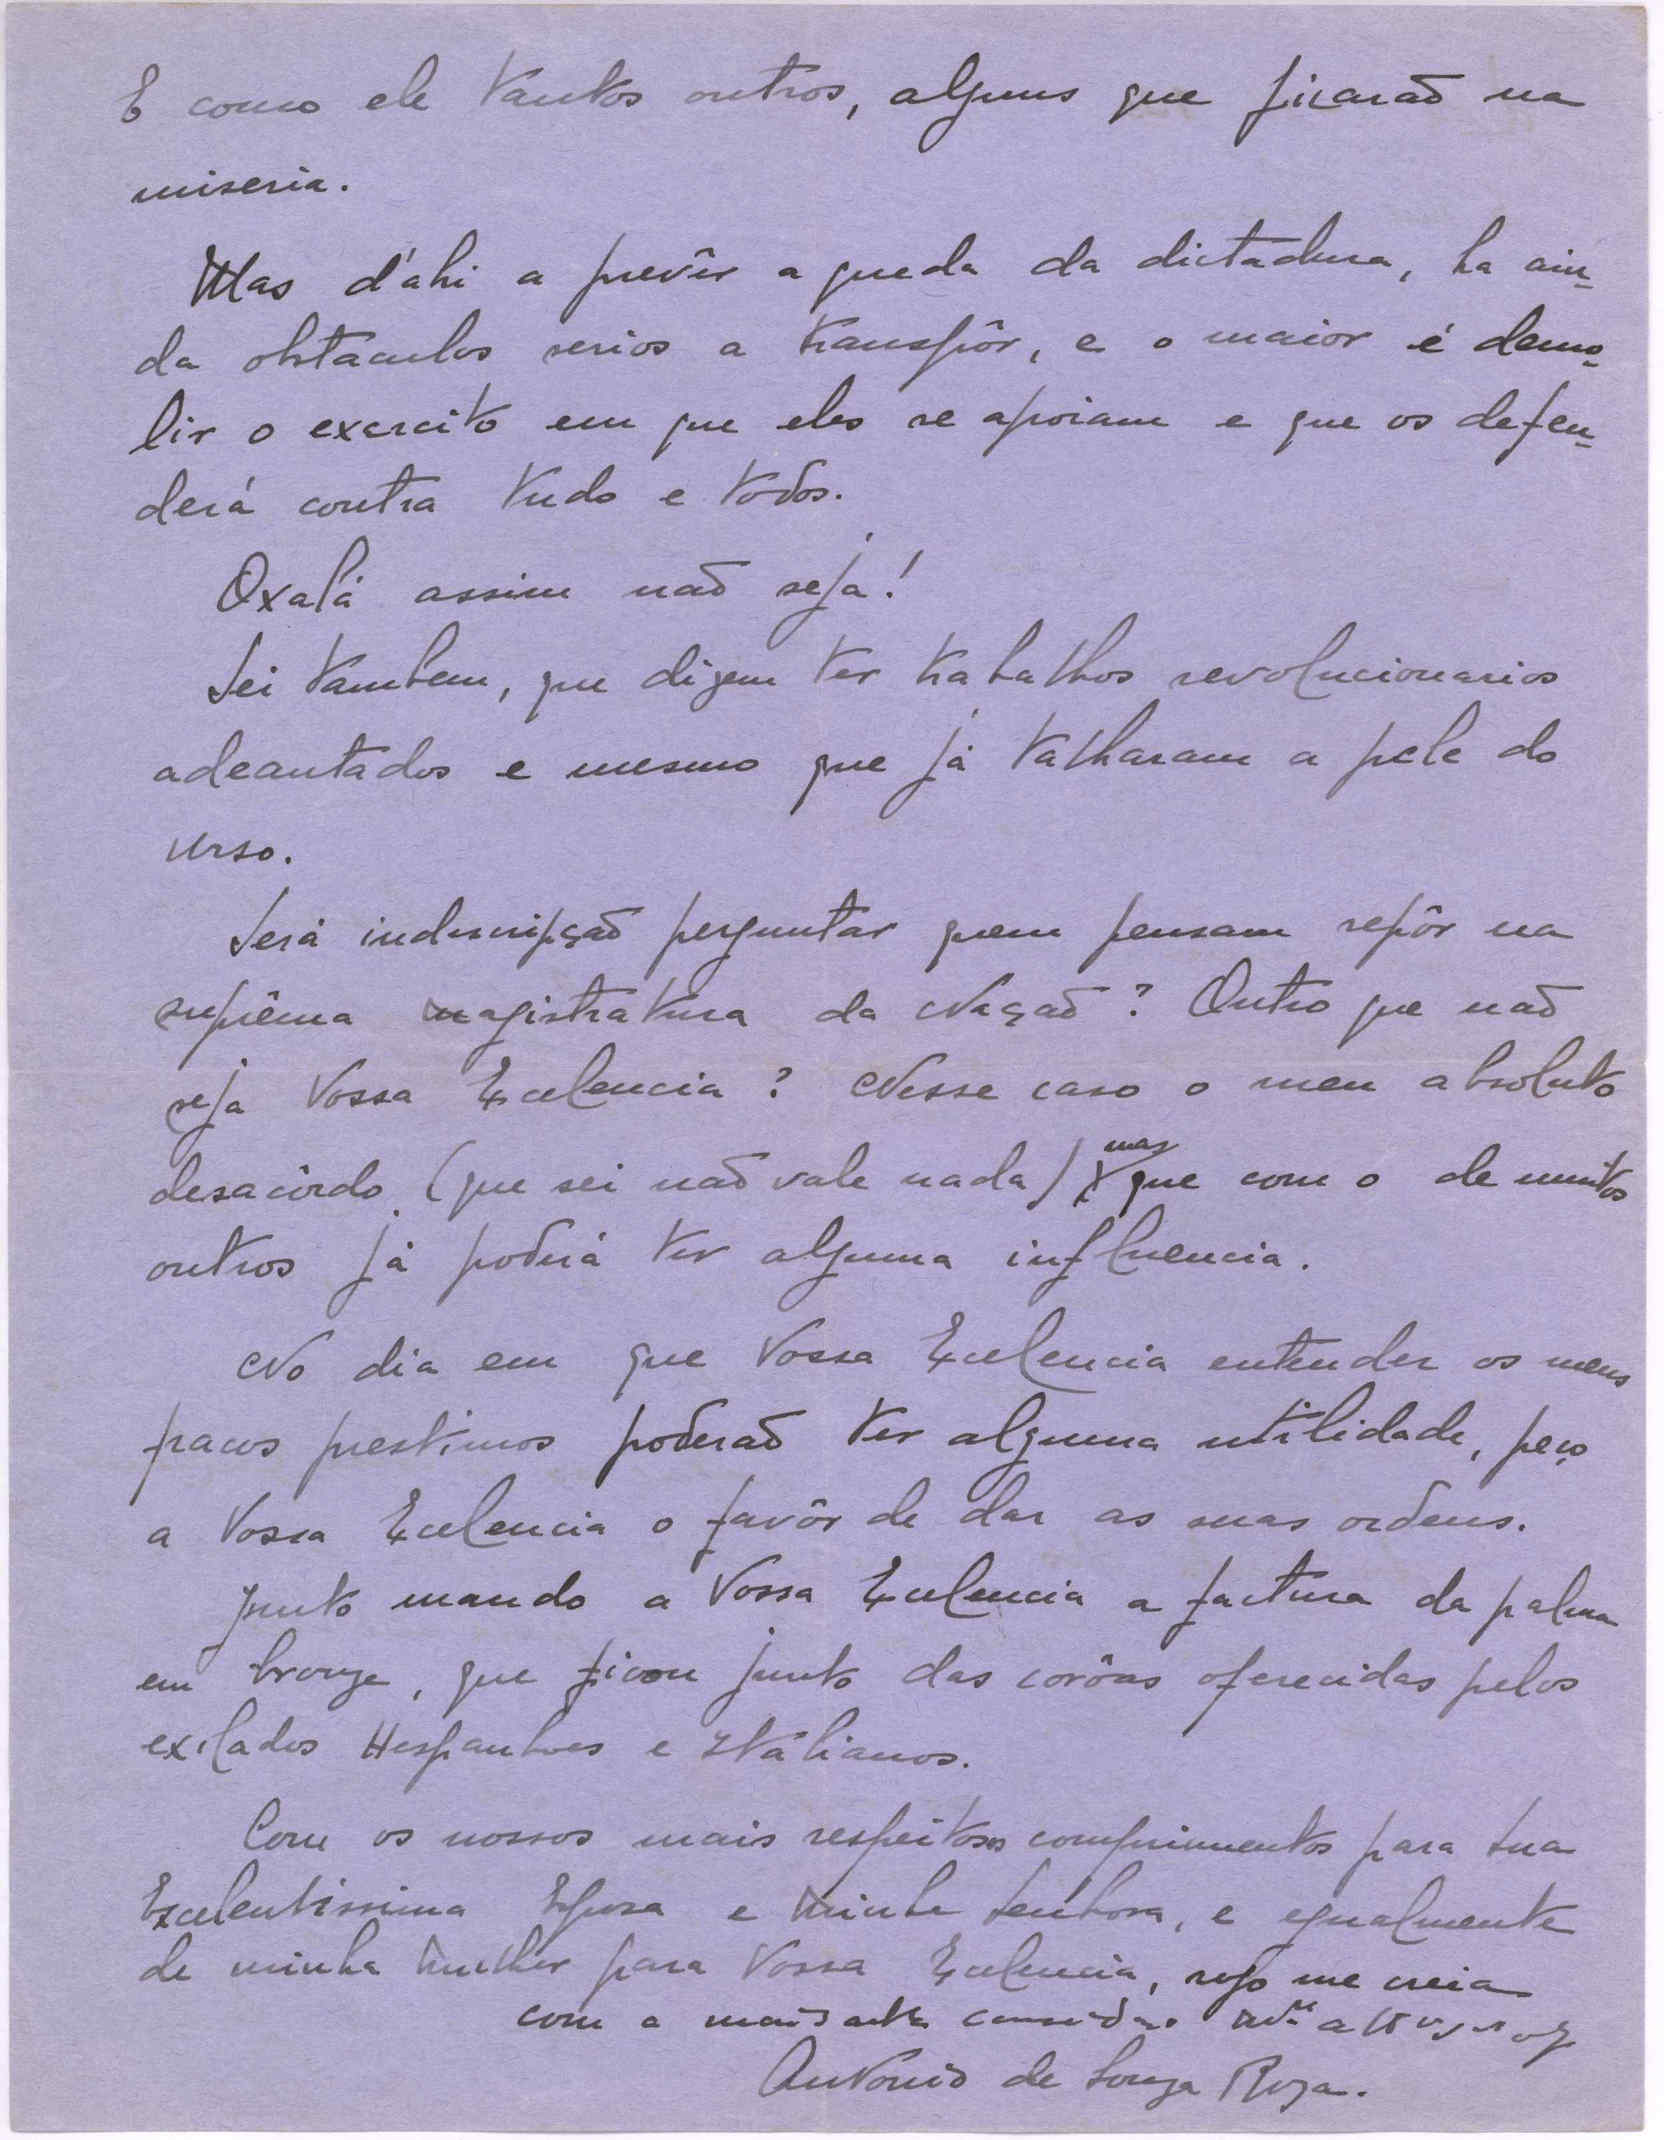 E como ele tantos outros, alguns que ficarão na
miseria.
Mas d'ahi a prevêr a queda da dictadura, ha ain-
da obstaculos serios a transpôr, e o maior é demo-
lir o exercito em que eles se apoiam e que os defen-
derá contra tudo e todos.
Oxalá assim não seja!
Sei tambem, que dizem ter trabalhos revolucionarios
adeantados e mesmo que já talharam a pele do
urso.
Será indescripção perguntar quem pensam repôr na
suprêma magistratura da Nação? Outro que não
seja Vossa Excelencia? Nesse caso o meu absoluto
desacôrdo (que sei não vale nada) mas que com o de muitos
outros já poderá ter alguma influencia.
No dia em que Vossa Excelencia entender os meus
fracos prestimos poderão ter alguma utilidade, peço
a Vossa Excelencia o favôr de dar as suas ordens.
Junto mando a Vossa Excelencia a factura da palma
em bronze, que ficou junto das corôas oferecidas pelos
exilados Hespanhoes e Italianos.
Com os nossos mais respeitosos comprimentos para Sua
Excelentissima Esposa e Minha Senhora, e egualmente
de minha Mulher para Vossa Excelencia, rogo me creia
com a mais alta
Antonio de Souza Roza.